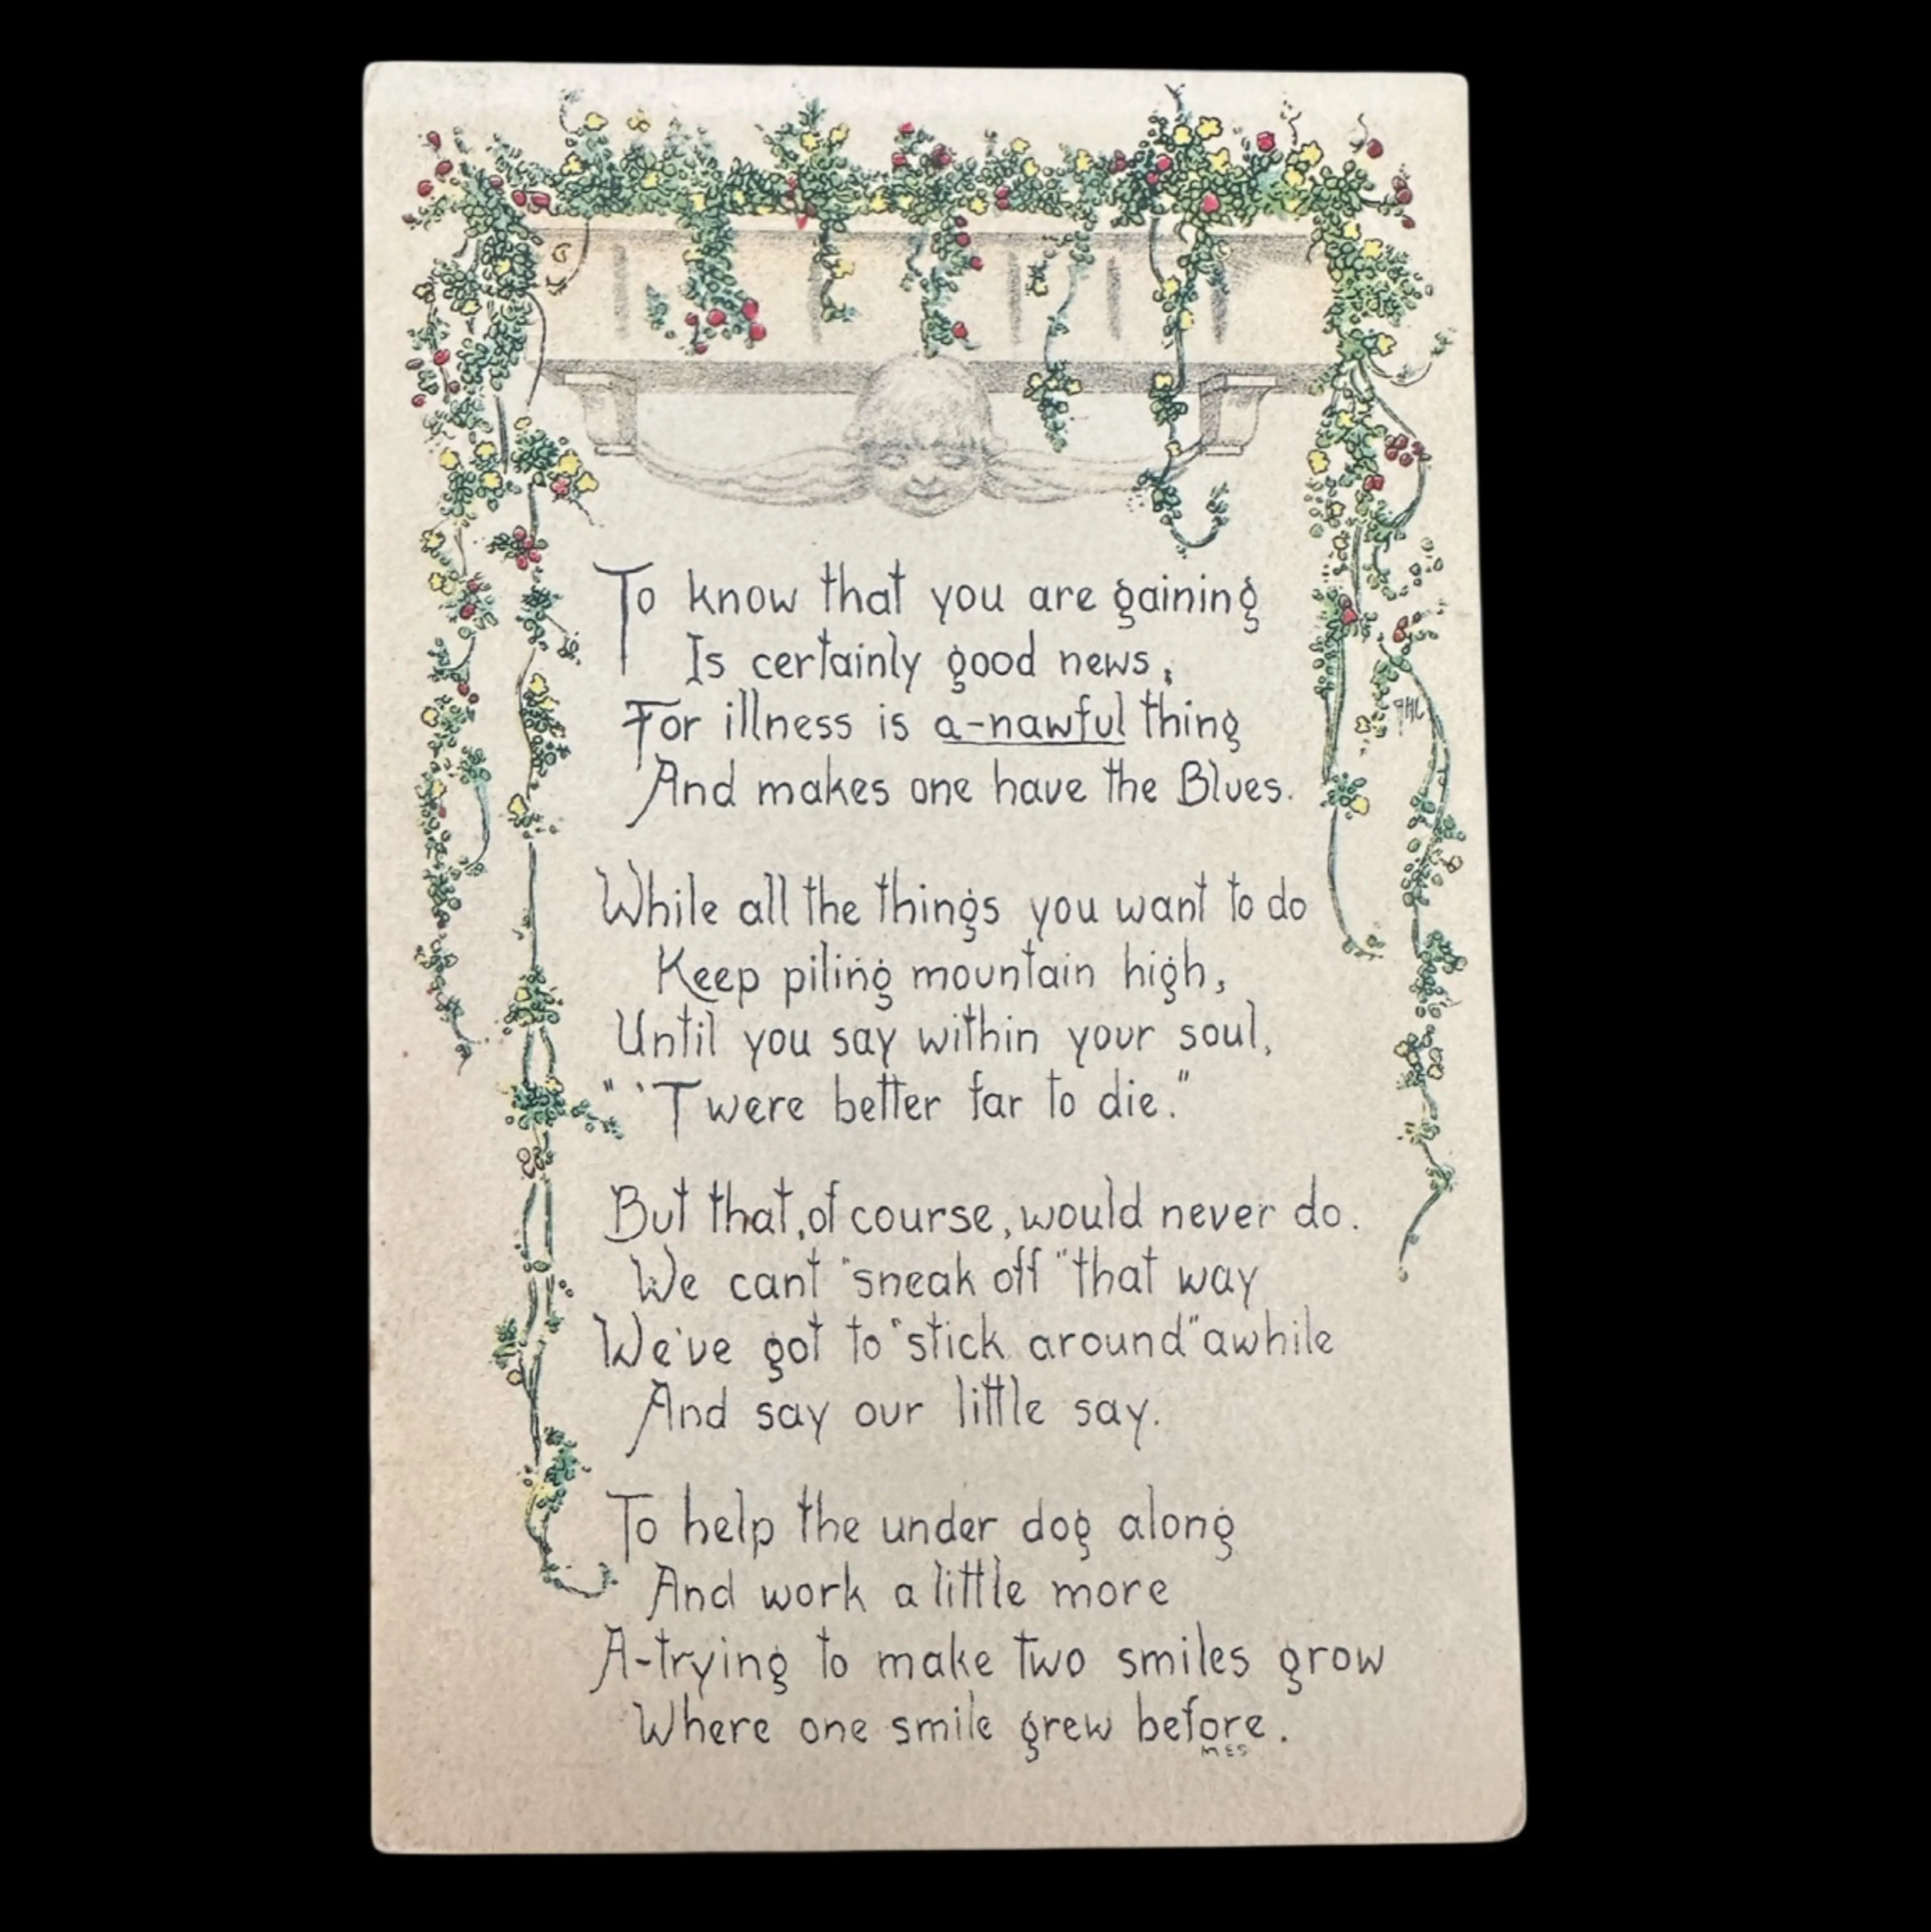 To know that you are gaining
Is certainly good news,
For illness is a-nawful thing
And makes one have the Blues.
While all the things you want to do
Keep piling mountain high,
Until you say within your soul,
" 'Twere better far to die."
But that, of course, would never do.
We cant "sneak off" that way
We've got to "stick around" awhile
And say our little say.
To help the under dog along
And work a little more
A-trying to make two smiles grow
Where one smile grew before.
MES